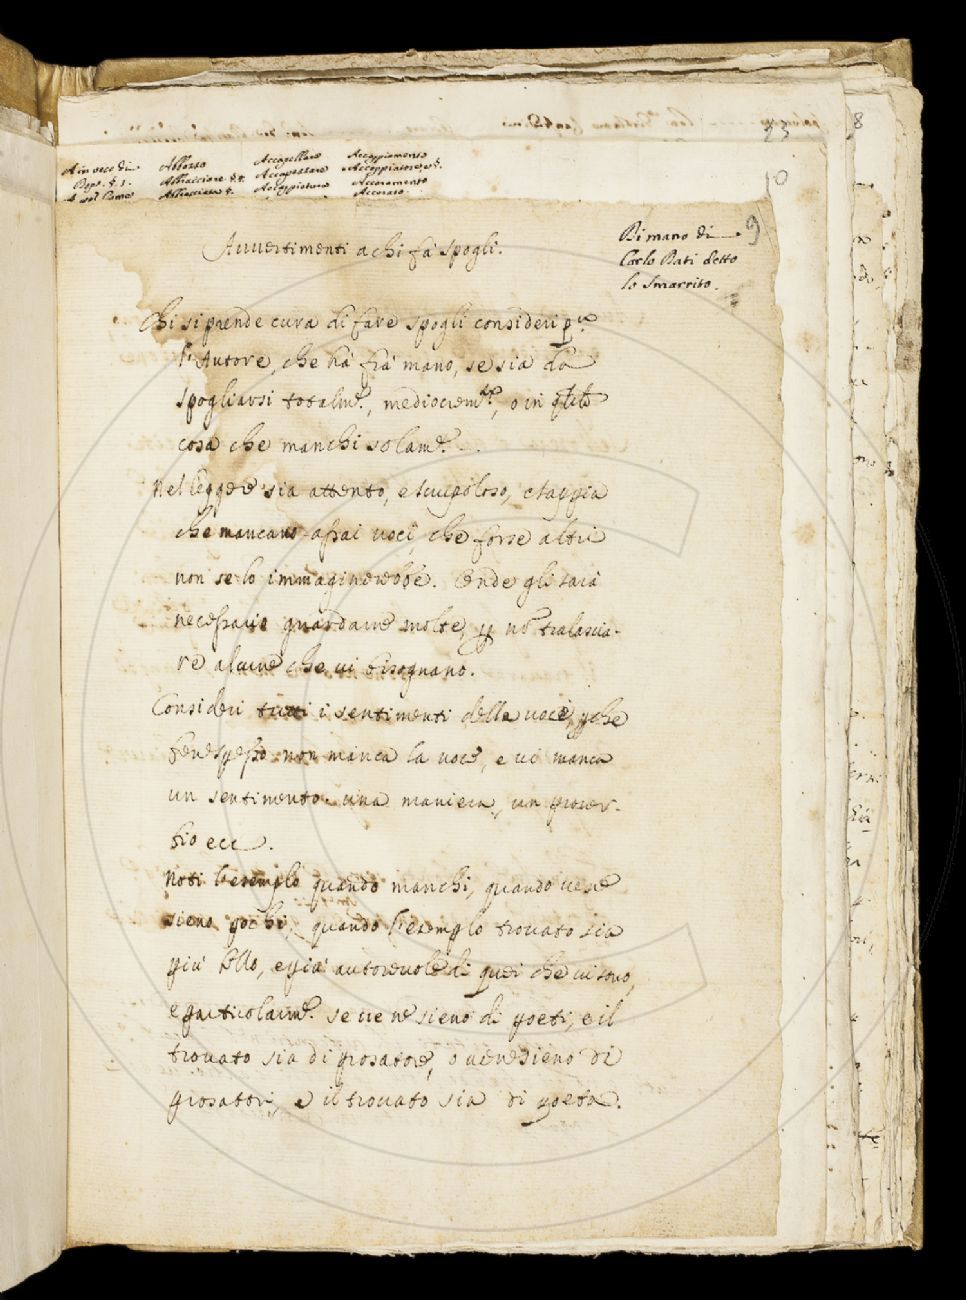 23
8
10
9
A in vece di
Dopo. §. 1.
A sol Come
Abbasso
Abbracciare §. §.
Abbracciata §.
Accapellare
Accapezzare
Accoppiatura
Accoppiamento
Accoppiatore, e §.
Accoramento
Accorato.
Di mano di
Carlo Dati detto
lo Smarrito.
Avvertimenti a chi fà spogli.
Chi si prende cura di fare spogli consideri p.
l'Autore, che hà frà mano, se sia da
spogliarsi totalm.e, mediocrem.te, o in
cosa che manchi solam.e.
Nel leggere sia attento, e scrupoloso, e sappia
che mancano assai voci, che forse altri
non se lo immaginerebbe. Onde gli sarà
necessario guardarne molte, p nō tralascia-
re alcune che vi bisognano.
Consideri tutti i sentimenti della voce, pche
bene spesso non manca la voce, e vi manca
un sentimento una maniera, un prover-
bio ecc.
Noti l'esemplo quando manchi, quando ve ne
sieno pochi, quando l'esemplo trovato sia
più bello, e più autorevole di quei che vi sono,
e particolarm.e se ve ne sieno di poeti, e il
trovato sia di prosatore, o ve ne sieno di
prosatori, e il trovato sia di poeta.